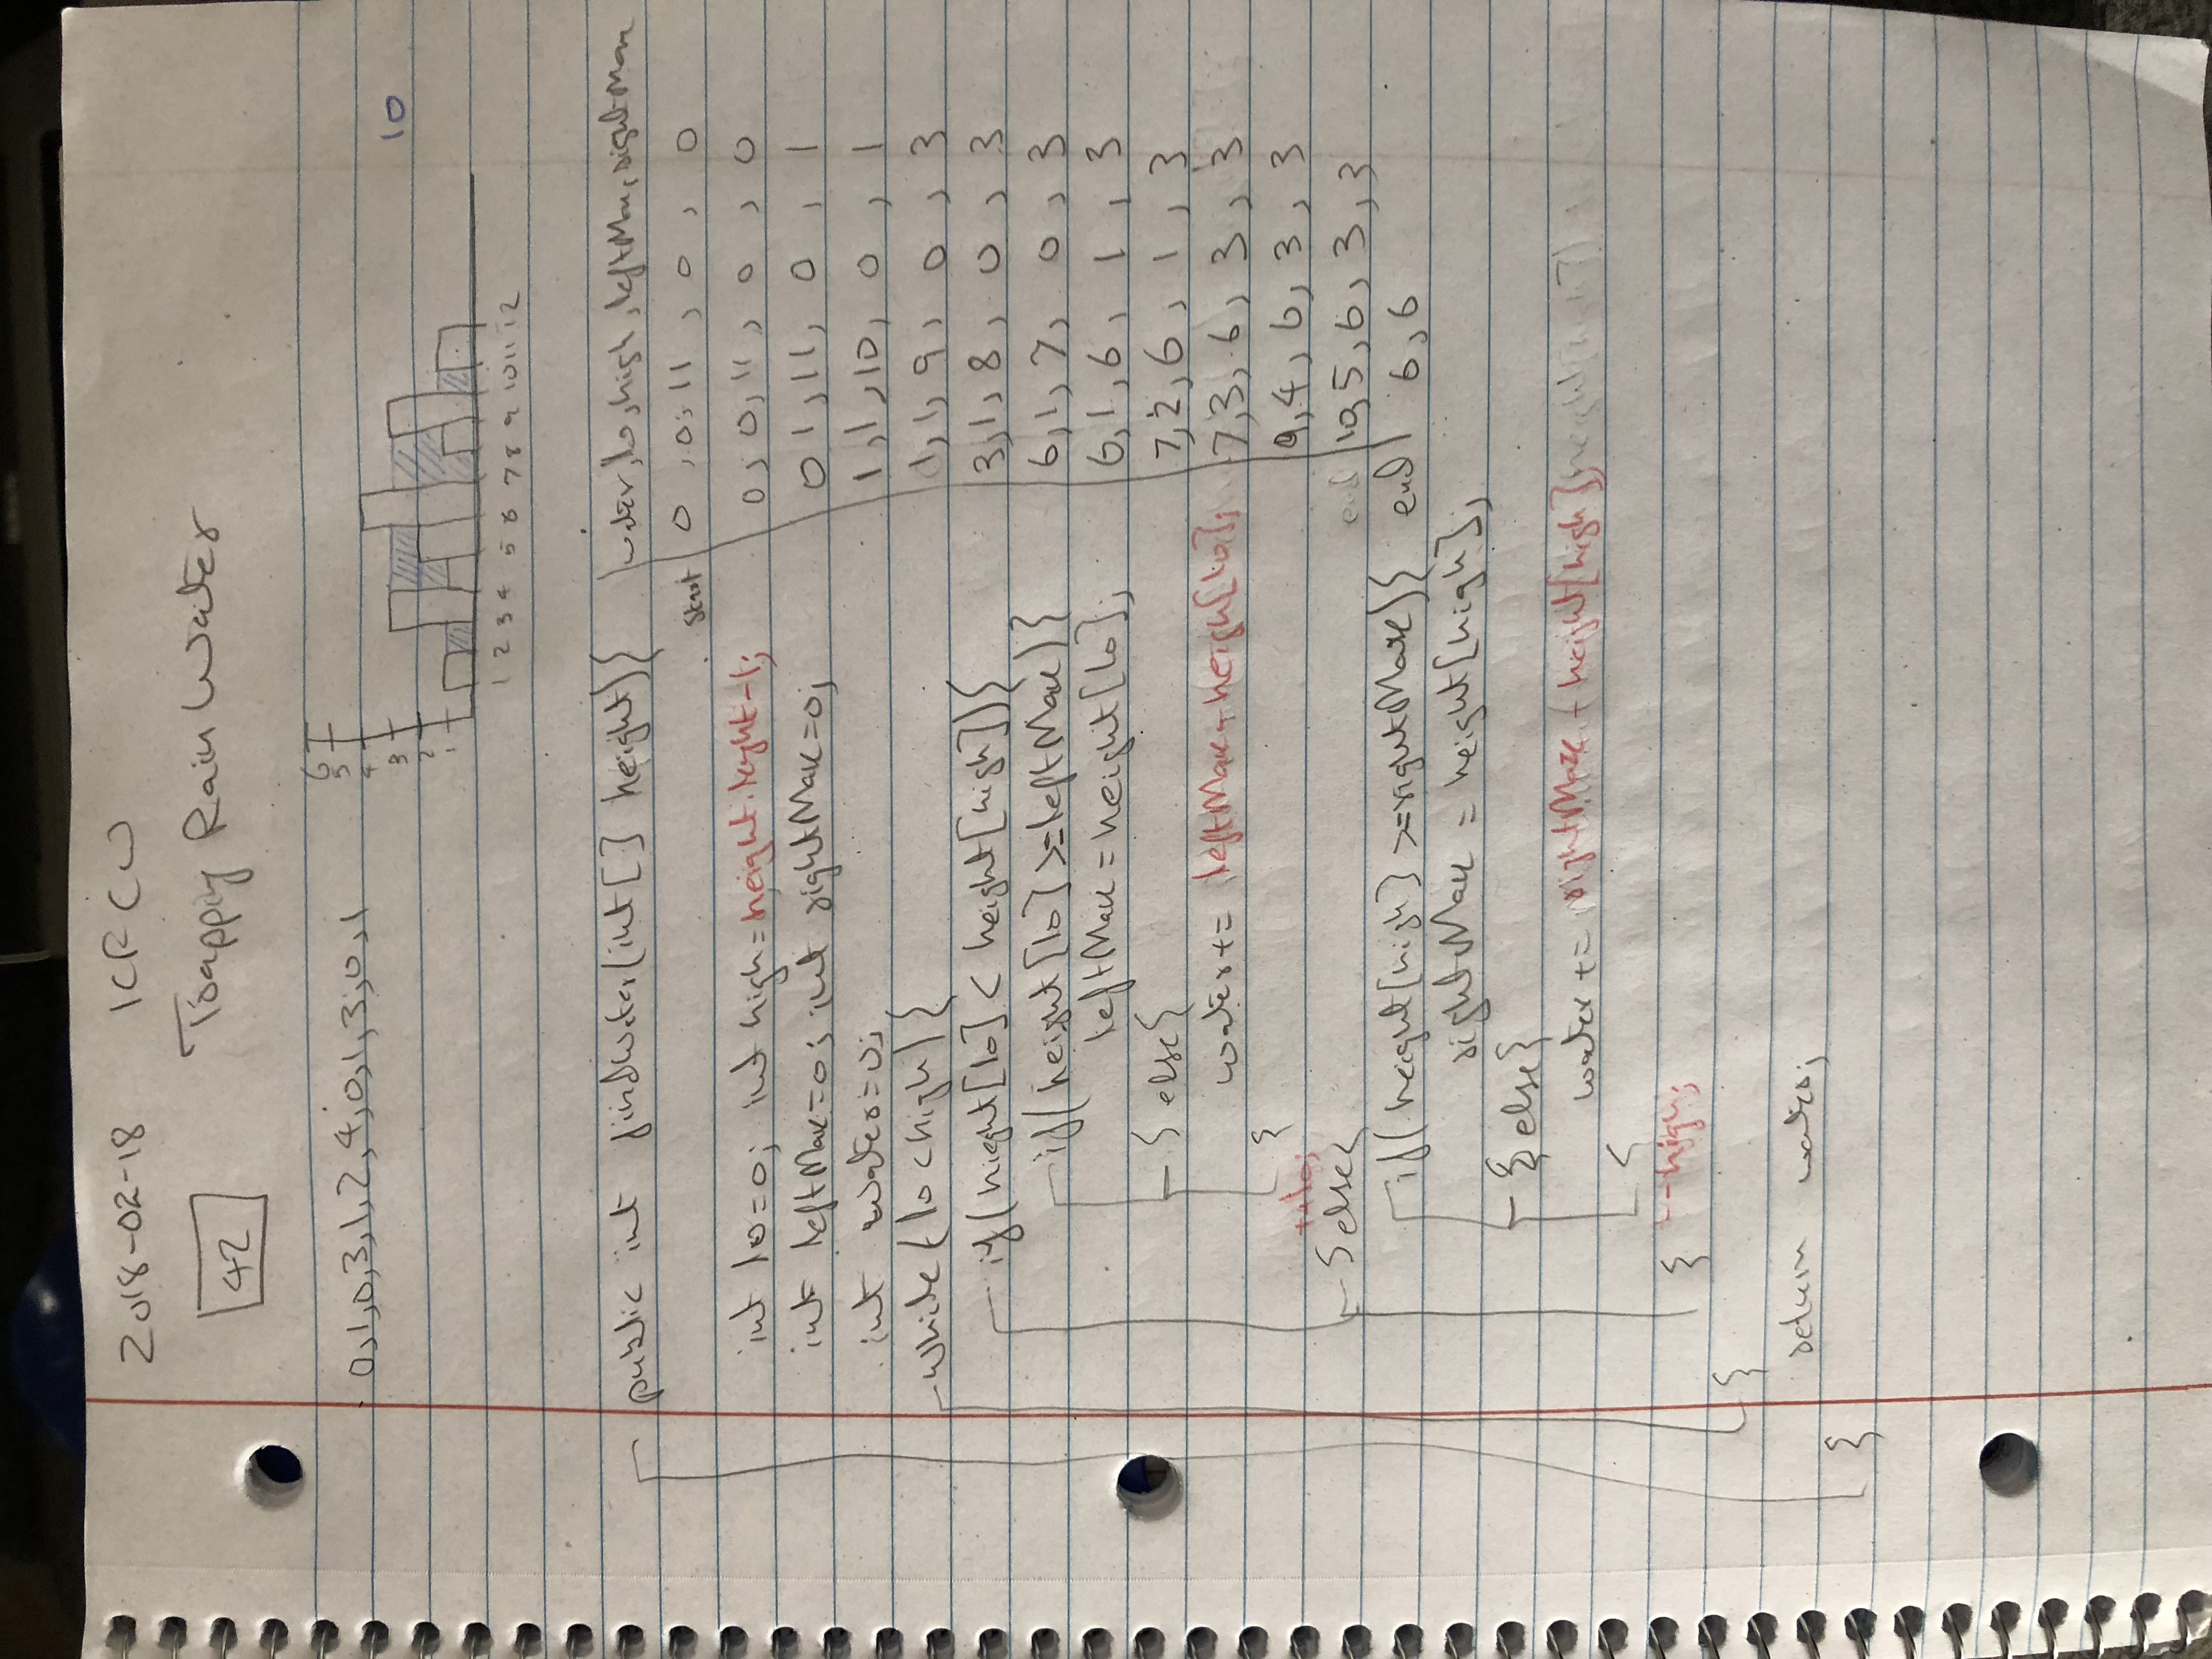 2018-02-18 ICFCW
42
Trapping Rain Water
0,1,0,3,1,2,4,0,1,3,0,1
6
5
4
3
2
1
10
1 2 3 4 5 6 7 8 9 10 11 12
public int findWater(int[] height){
int lo=0; int high=height.lenght-1;
int leftMax=0; int rightMax=0;
int water=0;
while(lo<high){
if(hieght[lo] < height[high]){
if(height[lo] >=leftMax){
leftMax = height[lo];
} else{
water+= leftMax-heigh[lo];
}
++lo;
} else{
if(height[high] >=rightMax){
rightMax = height[high];
} else{
water += rightMax - height[high];
}
--high;
}
}
return water;
}
water, lo, high, leftMax, rightMax
Start 0 ,0, 11 , 0 , 0
0, 0, 11, 0 , 0
0 1, 11, 0 , 1
1, 1, 10, 0 , 1
1, 1, 9, 0 , 3
3, 1, 8, 0 , 3
6, 1, 7, 0 , 3
6, 1, 6, 1 , 3
7, 2, 6, 1 , 3
7, 3, 6, 3 , 3
9, 4, 6, 3 , 3
end 10, 5, 6, 3, 3
end 6, 6